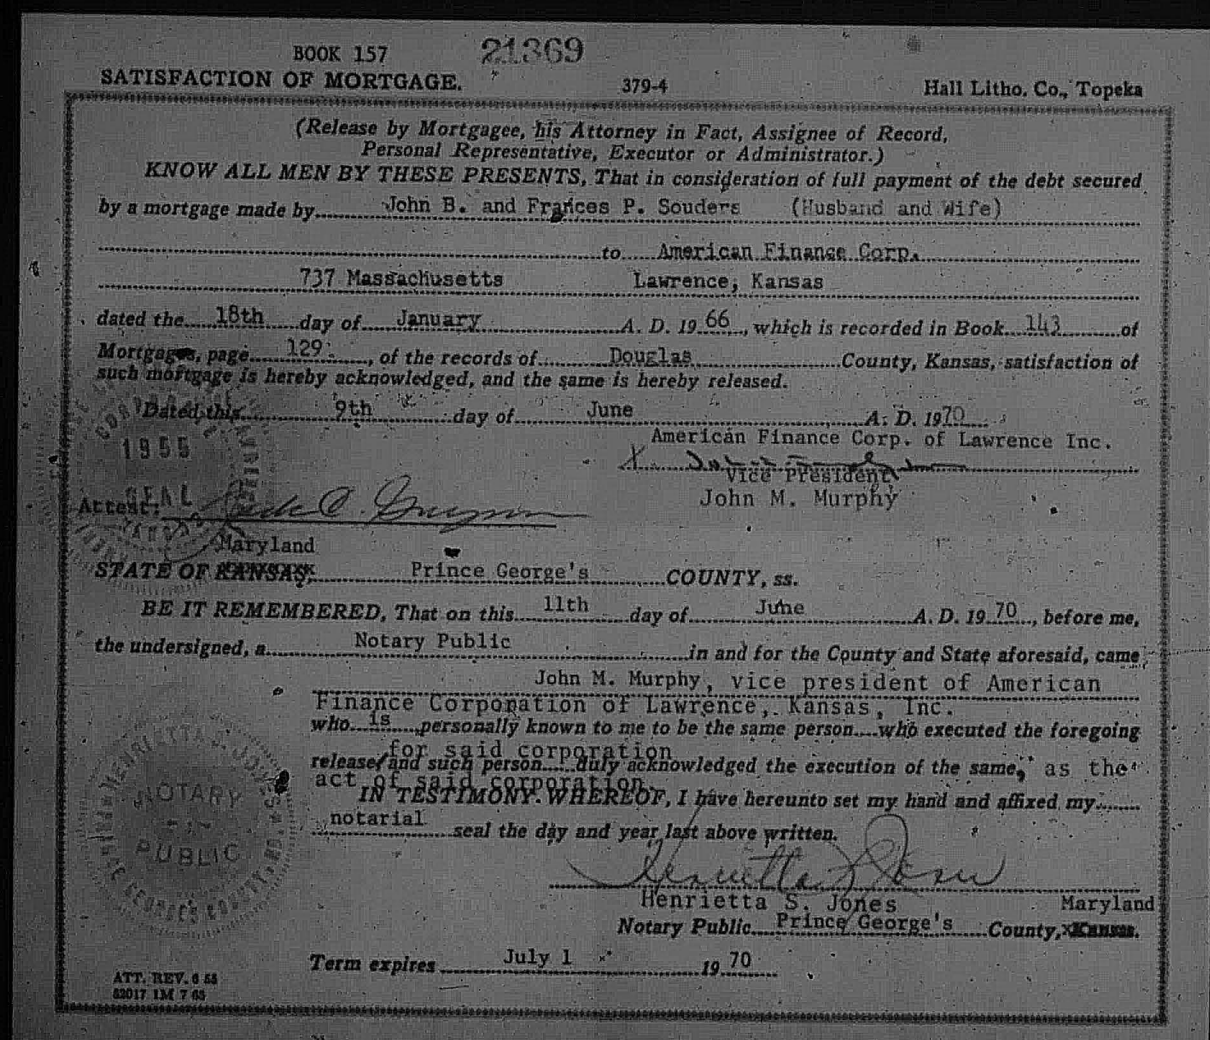 BOOK 157 21369
SATISFACTION OF MORTGAGE. 379-4 Hall Litho. Co., Topeka
(Release by Mortgagee, his Attorney in Fact, Assignee of Record,
Personal Representative, Executor or Administrator.)
KNOW ALL MEN BY THESE PRESENTS, That in consideration of full payment of the debt secured
by a mortgage made by John B. and Frances P. Souders (Husband and Wife)
to American Finance Corp.
737 Massachusetts Lawrence, Kansas
dated the 18th day of January A. D. 19 66, which is recorded in Book 143 of
Mortgages, page 129, of the records of Douglas County, Kansas, satisfaction of
such mortgage is hereby acknowledged, and the same is hereby released.
Dated this 9th day of June A. D. 1970
American Finance Corp. of Lawrence Inc.
X
Vice President
John M. Murphy
CORPORATE
1955
SEAL
Attest:
Maryland
STATE OF KANSAS, Prince George's COUNTY, ss.
BE IT REMEMBERED, That on this 11th day of June A. D. 19 70, before me,
the undersigned, a Notary Public in and for the County and State aforesaid, came
John M. Murphy, vice president of American
Finance Corporation of Lawrence, Kansas, Inc.
who is personally known to me to be the same person who executed the foregoing
for said corporation
release and such person duly acknowledged the execution of the same, as the
act of said corporation.
IN TESTIMONY WHEREOF, I have hereunto set my hand and affixed my
notarial seal the day and year last above written.
HENRIETTA S. JONES
NOTARY
PUBLIC
PRINCE GEORGE'S COUNTY, MD.
Henrietta S. Jones
Henrietta S. Jones Maryland
Notary Public Prince George's County, Kansas.
Term expires July 1 19 70
ATT. REV. 6 55
52017 1M 7 65